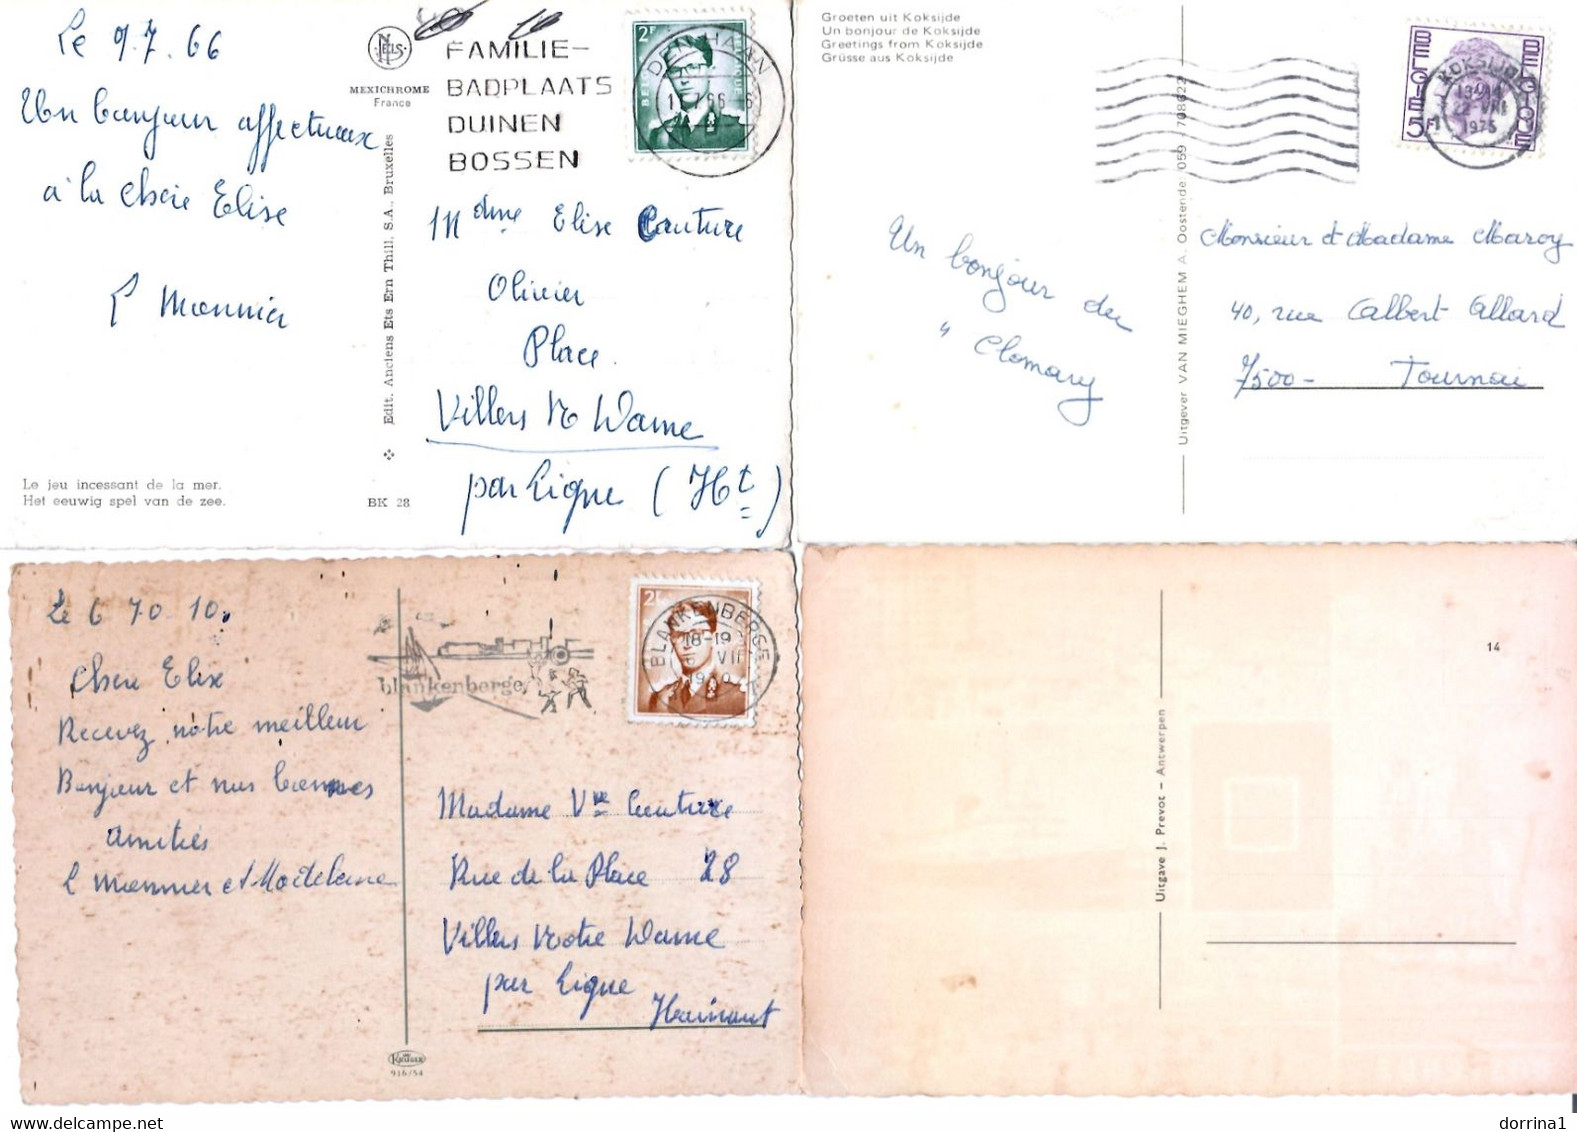 Le 9.7.66
Un bonjour affectueux
à la chère Elise
L Monnier
NELS
MEXICHROME
France
FAMILIE-
BADPLAATS
DUINEN
BOSSEN
2F
DE HAAN
Mdme Elise Couture
Olivier
Place.
Villers N Dame
par Ligne (Ht)
Edit. Anciens Ets Ern Thill, S.A., Bruxelles
Le jeu incessant de la mer.
Het eeuwig spel van de zee.
BK 28
Groeten uit Koksijde
Un bonjour de Koksijde
Greetings from Koksijde
Grüsse aus Koksijde
BELGIE 5F
BELGIQUE
KOKSIJDE
13-14
22 VIII
1975
Un bonjour du
" Clomary
Monsieur et Madame Maroy
40, rue Albert Allard
7500 - Tournai
Uitgever VAN MIEGHEM A. Oostende: 059 708622
Le 6 70 10.
Chère Elise
Recevez notre meilleur
Bonjour et nos bonnes
amitiés
L Monnier et Madeleine
blankenberge
2F
BLANKENBERGE
18-19
VII
Madame Vve Couture
Rue de la Place 28
Villers Notre Dame
par Ligne
Hainaut
KRÜGER
916/54
14
Uitgave J. Prevot - Antwerpen
dorrina1